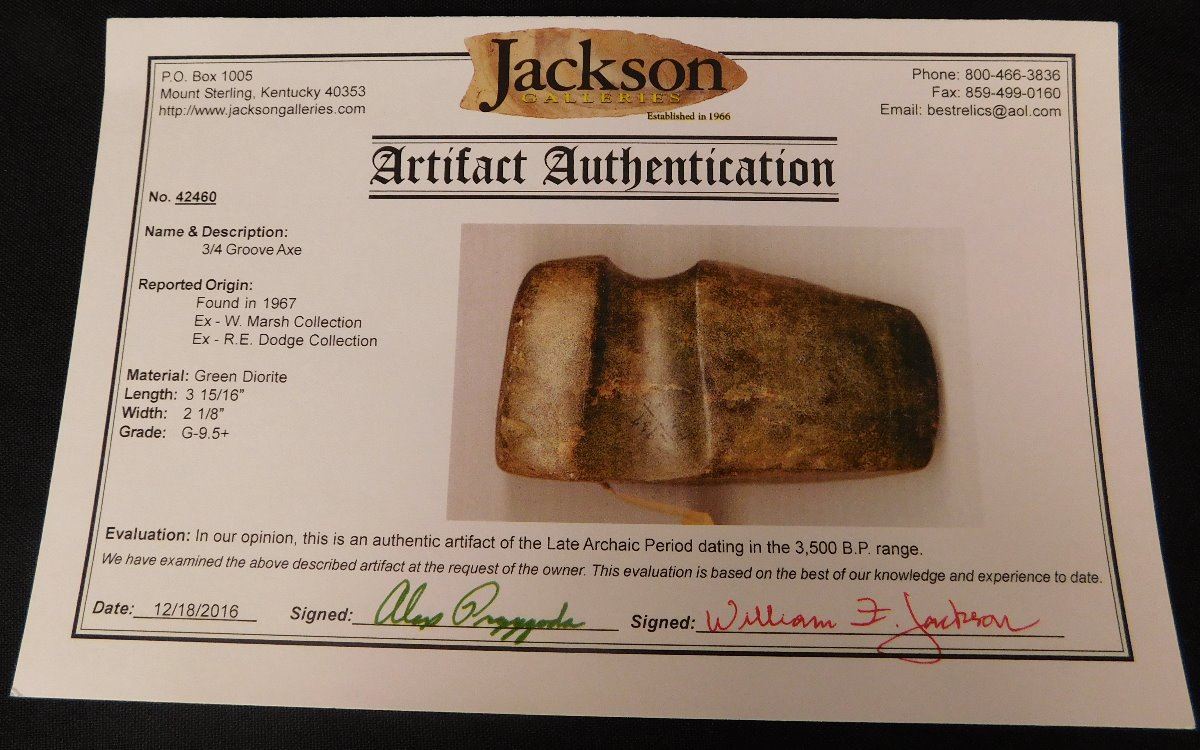 Jackson
GALLERIES
Established in 1966
P.O. Box 1005
Mount Sterling, Kentucky 40353
http://www.jacksongalleries.com
Phone: 800-466-3836
Fax: 859-499-0160
Email: bestrelics@aol.com
Artifact Authentication
No. 42460
Name & Description:
3/4 Groove Axe
Reported Origin:
Found in 1967
Ex - W. Marsh Collection
Ex - R.E. Dodge Collection
Material: Green Diorite
Length: 3 15/16"
Width: 2 1/8"
Grade: G-9.5+
Evaluation: In our opinion, this is an authentic artifact of the Late Archaic Period dating in the 3,500 B.P. range.
We have examined the above described artifact at the request of the owner. This evaluation is based on the best of our knowledge and experience to date.
Date: 12/18/2016 Signed: Alex Signed: William F. Jackson